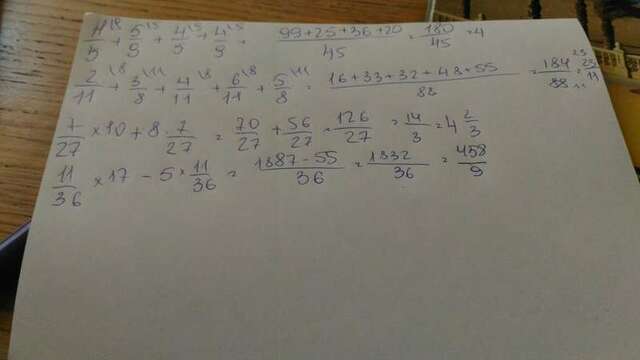 11\9/5 + 5\5/9 + 4\9/5 + 4\5/9 = (99+25+36+20)/45 = 180/45 = 4
2\8/11 + 3\11/8 + 4\8/11 + 6\8/11 + 5\11/8 = (16+33+32+48+55)/88 = 184/88 = 23/11
7/27 × 10 + 8 · 7/27 = 70/27 + 56/27 = 126/27 = 14/3 = 4 2/3
11/36 × 17 - 5 × 11/36 = (1887 - 55)/36 = 1832/36 = 458/9